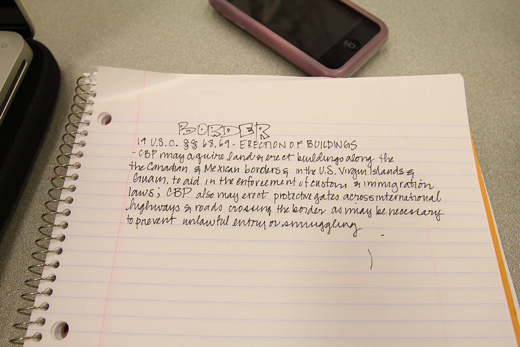 BORDER
19 U.S.C. §§ 68, 69 - ERECTION OF BUILDINGS
- CBP may aquire land & erect buildings along the
the Canadian & Mexican borders & in the U.S. Virgin Islands &
Guam, to aid in the enforcement of custom & immigration
laws; CBP also may erect protective gates across international
highways & roads crossing the border as may be necessary
to prevent unlawful entry or smuggling